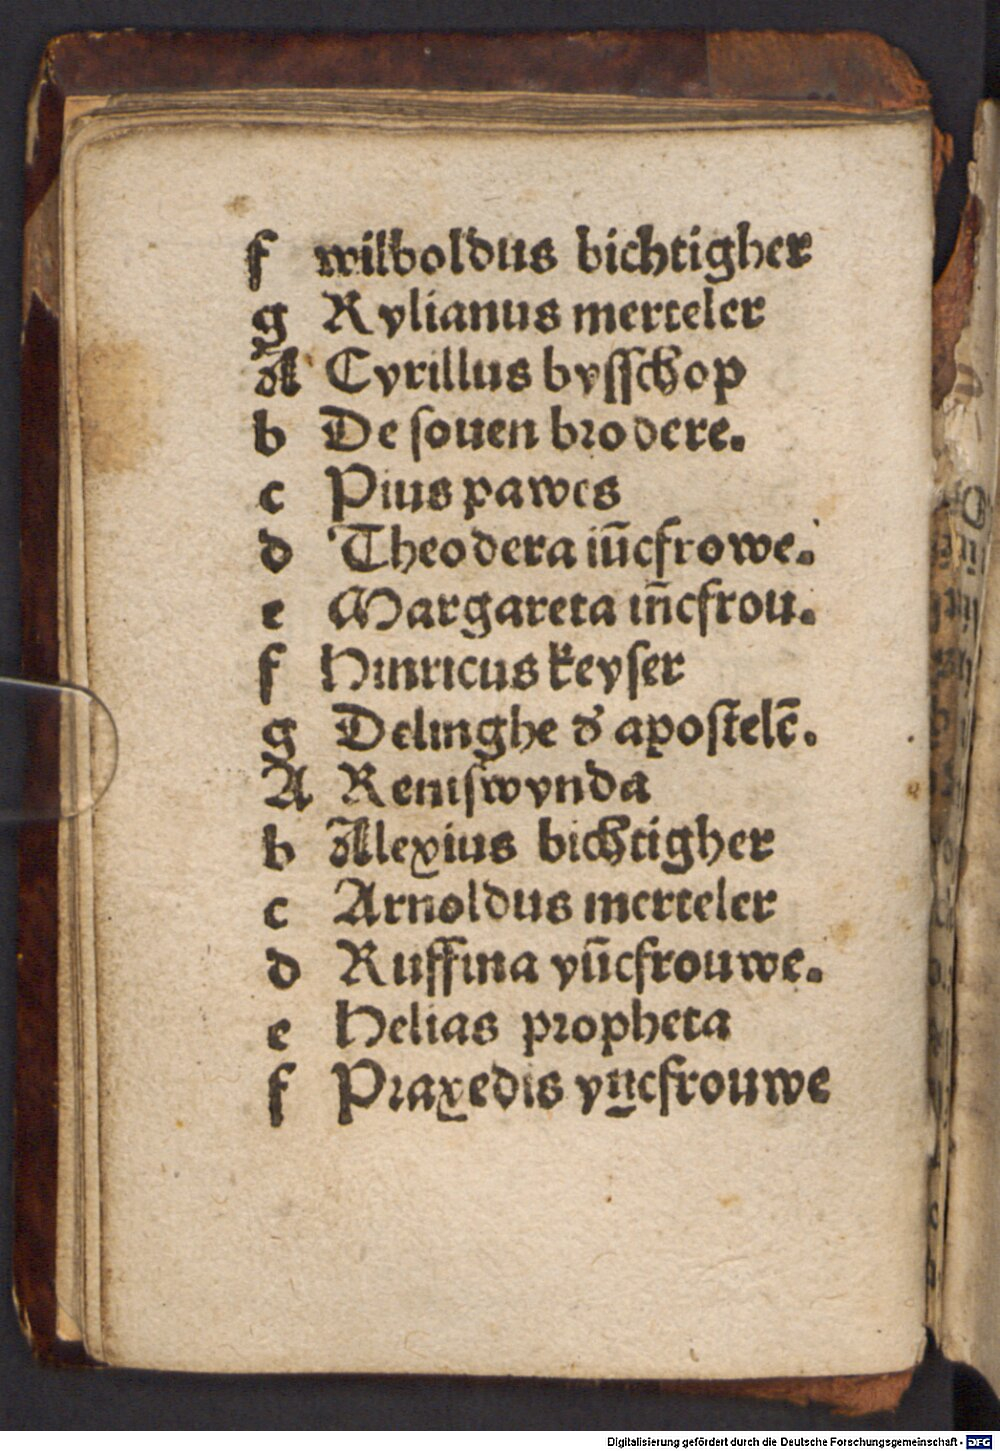 f wilboldus bichtigher
g Kylianus merteler
A Cyrillus bysschop
b De souen brodere.
c Pius pawes
d Theodera iūcfrowe.
e Margareta in̄cfrou.
f Hinricus keyser
g Delinghe d' apostelē.
A Reniswynda
b Alexius bichtigher
c Arnoldus merteler
d Ruffina yūcfrouwe.
e Helias propheta
f Praxedis yṳcfrouwe
Digitalisierung gefördert durch die Deutsche Forschungsgemeinschaft - DFG